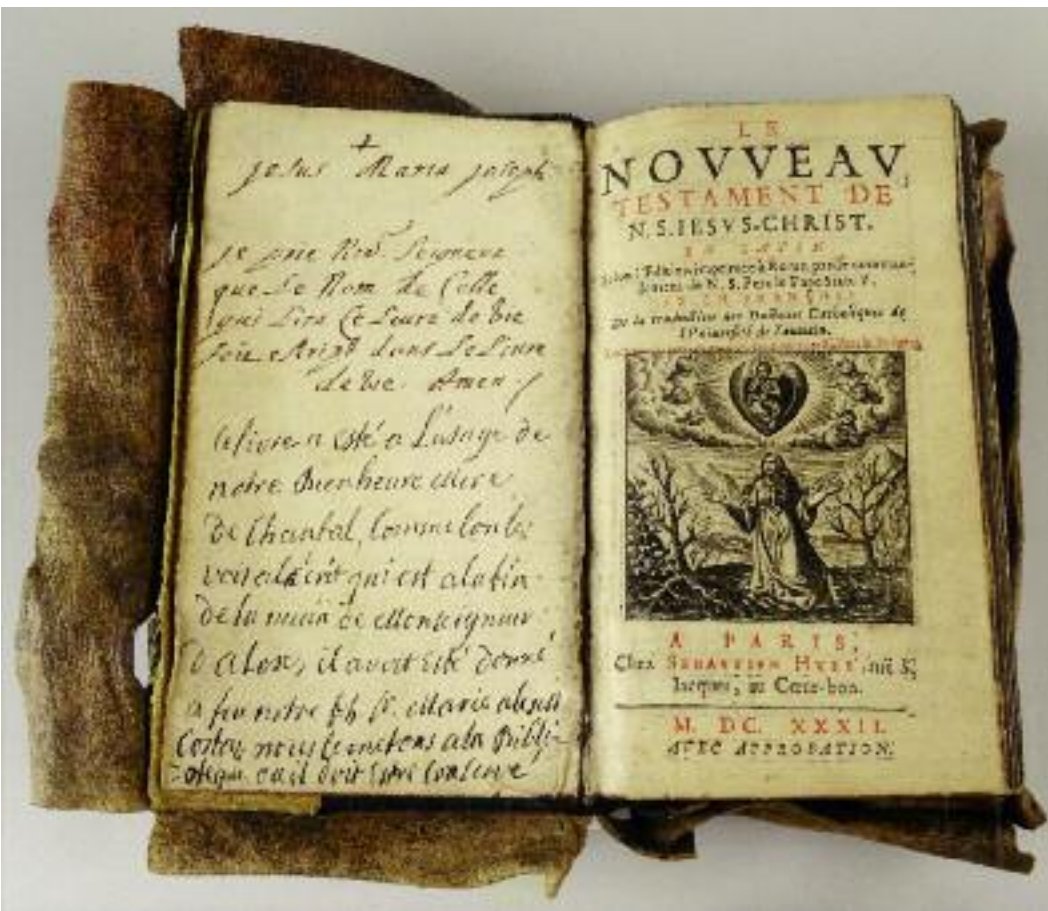 Jesus Maria Joseph
je prie Seigneur
que Le Nom de Celle
qui Lira Ce Liure de vie
soie escript dans Le Liure
de vie. Amen
Ce livre a esté a L'usage de
notre Bienheure Mere
De Chantal, comme lon le
voit a la fin
De la main de Monseigneur
il avoit esté donné
a feu notre
nous le metons a la Bibli
oteque ou il doit estre conserve
LE
NOVVEAV
TESTAMENT DE
N. S. IESVS-CHRIST.
EN LATIN
Selon l'Edition imprimée à Rome par le comman-
dement de N. S. Pere le Pape Sixte V.
ET EN FRANÇOIS,
De la traduction des Docteurs Catholiques de
l'Vniuersité de Louuain.
A PARIS,
Chez SEBASTIEN HVRÉ, ruë S.
Iacques, au Cœur-bon.
M. DC. XXXII.
AVEC APPROBATION.